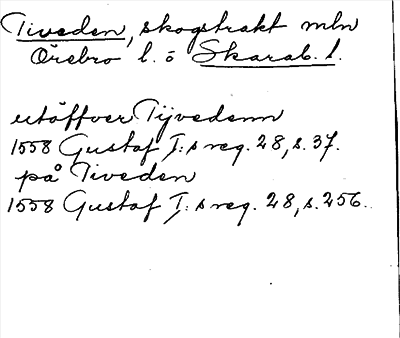 Tiveden, skogstrakt mln
Örebro l. o Skarab. l.
utöffver Tijvedenn
1558 Gustaf I:s reg. 28, s. 37.
på Tiveden
1558 Gustaf I:s reg. 28, s. 256.